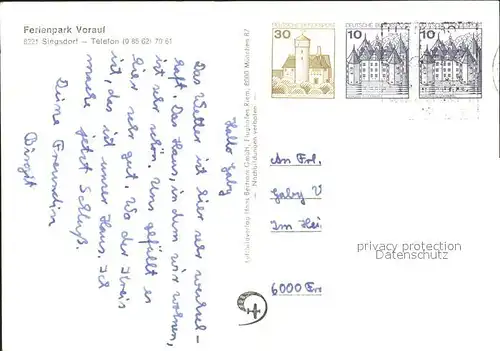 Ferienpark Vorauf
8221 Singsdorf – Telefon (0 86 62) 70 61
Hallo Gaby
Das Wetter ist hier sehr wechsel-
haft. Das Haus, in dem wir wohnen,
ist sehr schön. Uns gefällt es
hier sehr gut. Wo der Kreis
ist, das ist unser Haus. Ich
mache jetzt Schluß.
Deine Freundin
Birgit
Luftbildverlag Hans Bertram GmbH, Flughafen Riem, 8000 München 87
– Nachbildungen verboten –
DEUTSCHE BUNDESPOST
30
DEUTSCHE BUNDESPOST
10
DEUTSCHE BUNDESPOST
10
An Frl.
Gaby V
Im Hei
6000 Fr
privacy protection
Datenschutz